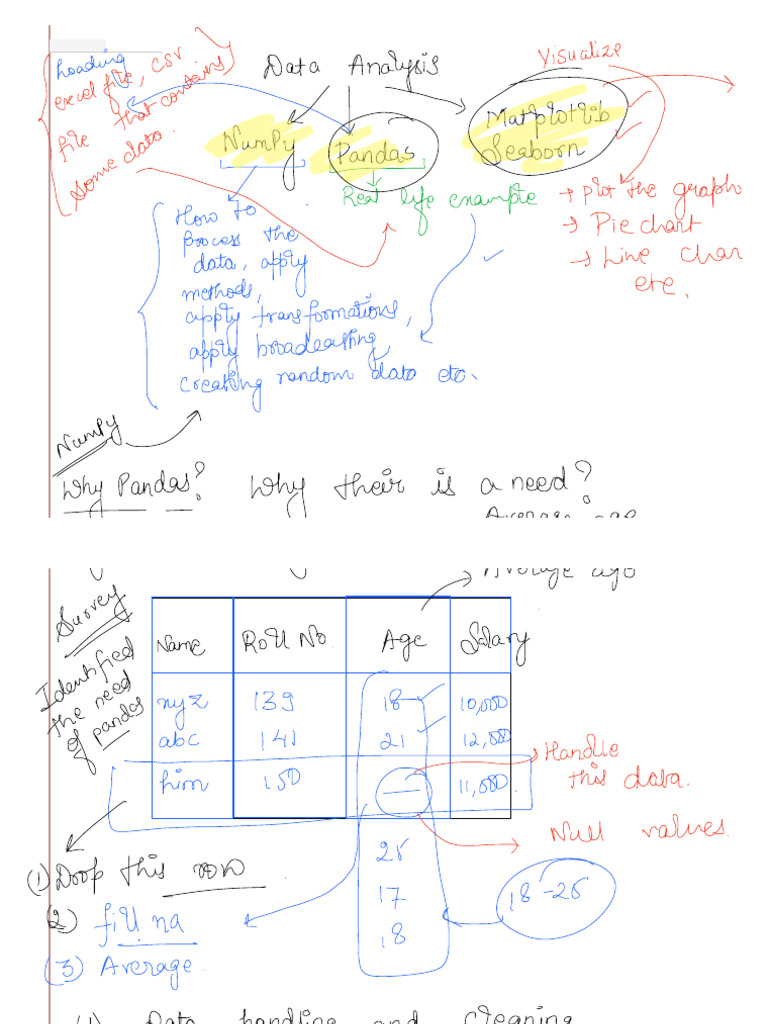 Data Analysis
Visualize
Loading
excel file, CSV
file that contains
some data.
NumPy
Pandas
Matplotlib
Seaborn
Real life example
How to
process the
data, apply
methods,
apply transformations,
apply broadcasting,
creating random data etc.
→ plot the graph
→ Pie chart
→ Line char
etc.
NumPy
Why Pandas? Why their is a need?
Average age
Average age
Survey
Identified
the need
of pandas
Name Roll No. Age Salary
xyz 139 18 10,000
abc 141 21 12,000
him 150 — 11,000
Handle
this data.
Null values.
25
17
18
18-25
(1) Drop this row
(2) fill na
(3) Average
(1) Data handling and cleaning